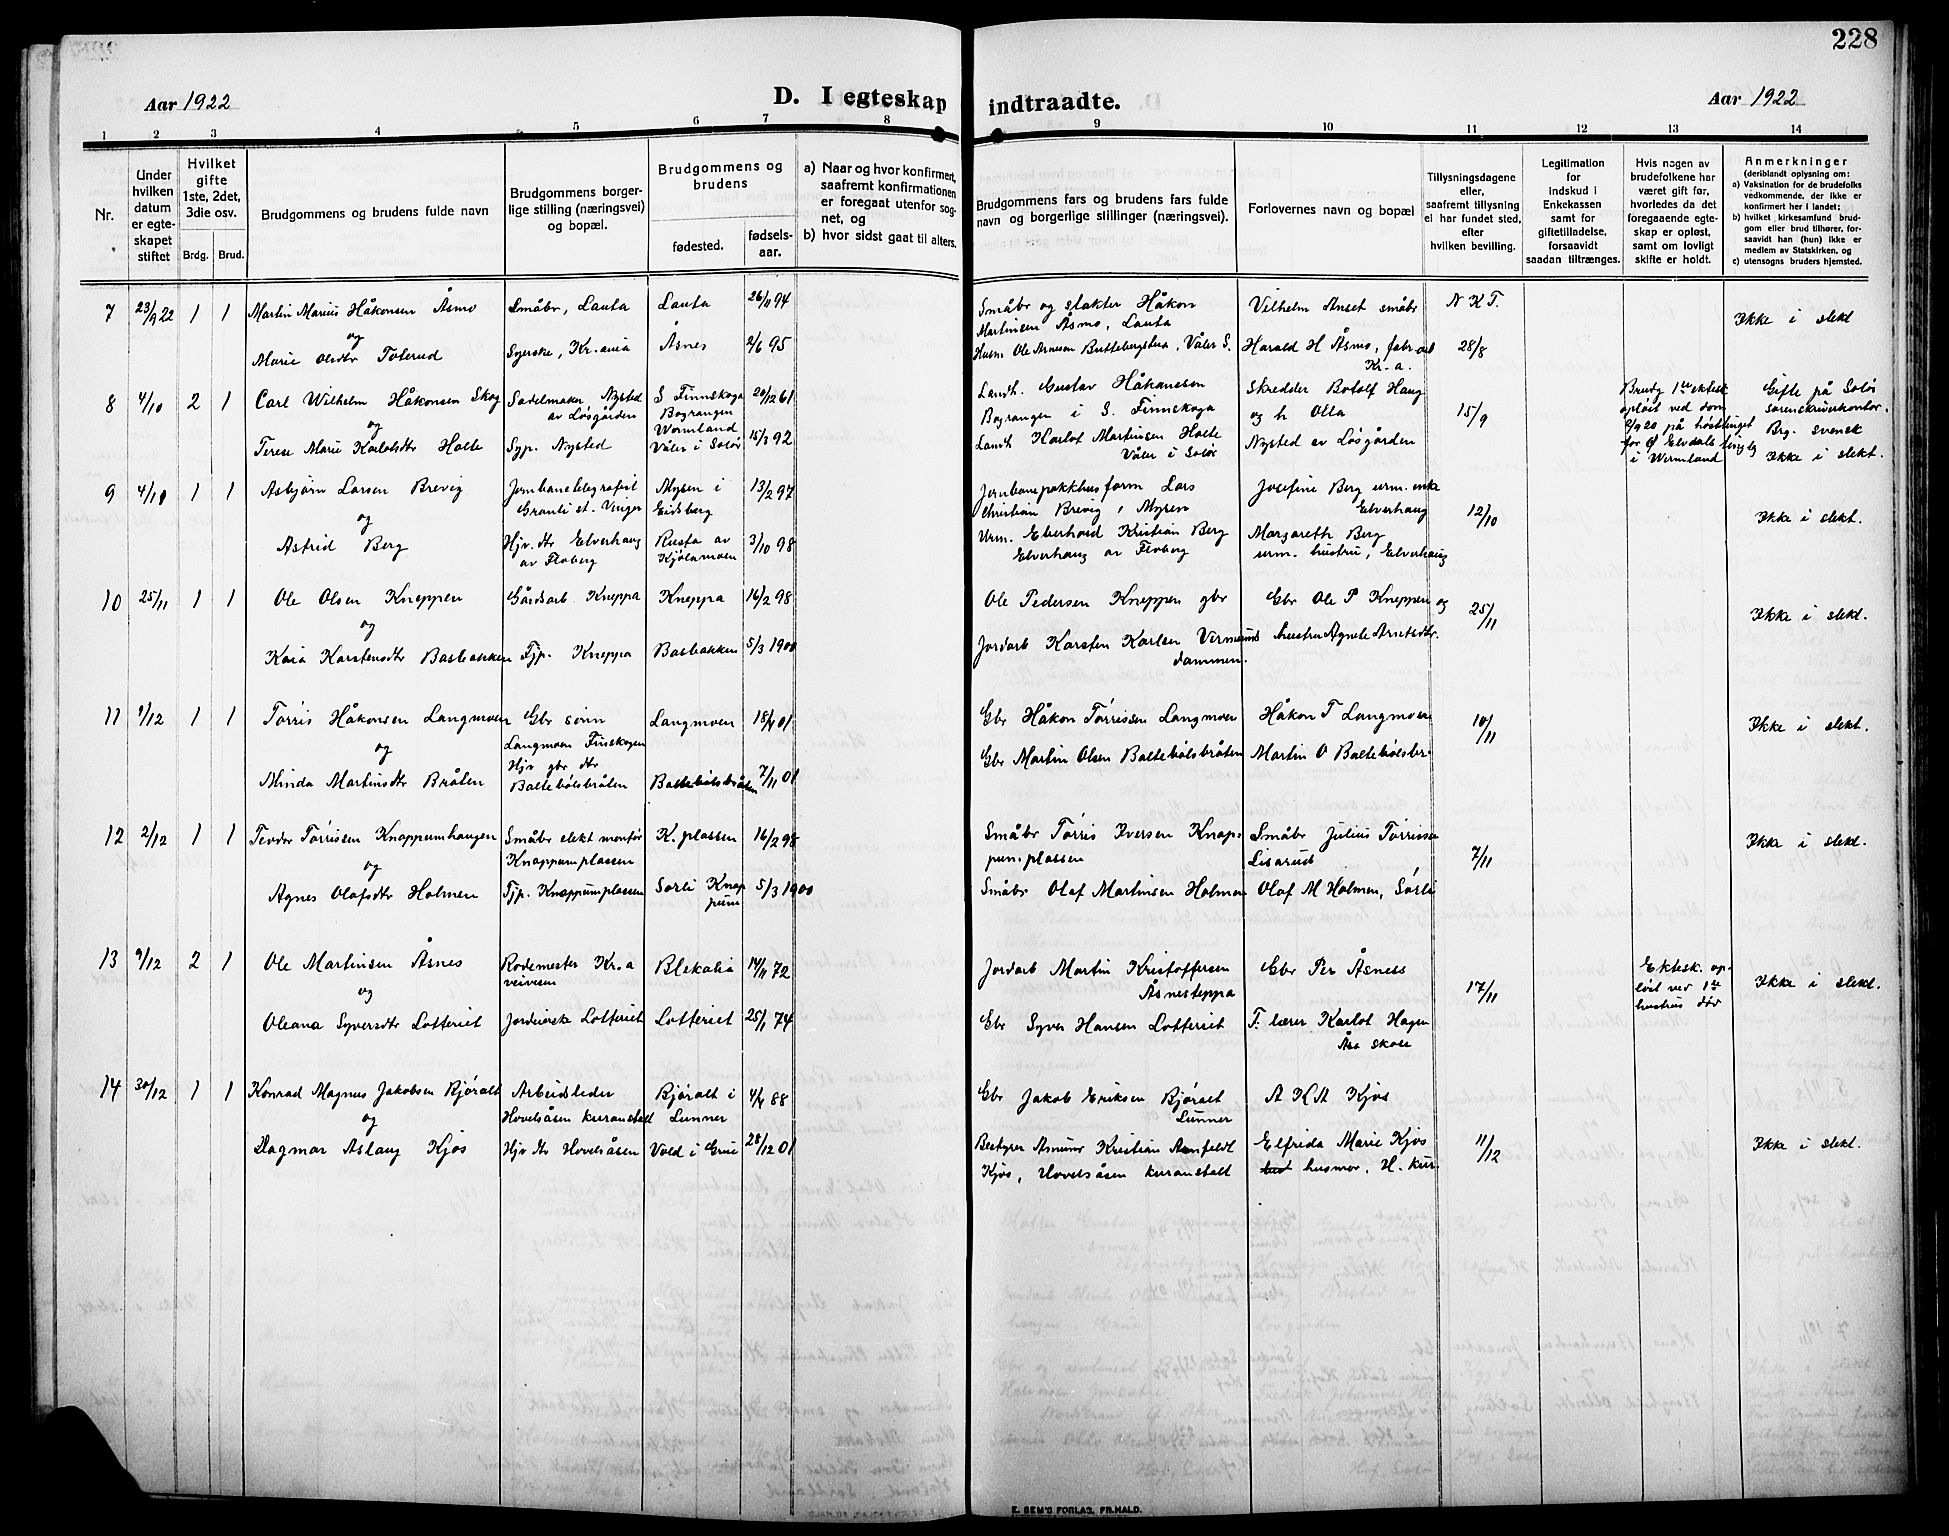 228
Aar 1922
D. I egteskap indtraadte.
Aar 1922
1 2 3 4 5 6 7 8 9 10 11 12 13 14
Nr.
Under hvilken datum er egteskapet stiftet
Hvilket gifte 1ste, 2det, 3die osv.
Brdg. Brud.
Brudgommens og brudens fulde navn
Brudgommens borgerlige stilling (næringsvei) og bopæl.
Brudgommens og brudens
fødested.
fødselsaar.
a) Naar og hvor konfirmert, saafremt konfirmationen er foregaat utenfor sognet, og
b) hvor sidst gaat til alters.
Brudgommens fars og brudens fars fulde navn og borgerlige stillinger (næringsvei).
Forlovernes navn og bopæl
Tillysningsdagene eller, saafremt tillysning ei har fundet sted, efter hvilken bevilling.
Legitimation for indskud i Enkekassen samt for giftetilladelse, forsaavidt saadan tiltrænges.
Hvis nogen av brudefolkene har været gift før, hvorledes da det foregaaende egteskap er opløst, samt om lovligt skifte er holdt.
Anmerkninger
(deriblandt oplysning om:
a) Vaksination for de brudefolks vedkommende, der ikke er konfirmert her i landet;
b) hvilket kirkesamfund brudgom eller brud tilhører, forsaavidt han (hun) ikke er medlem av Statskirken, og
c) utensogns bruders hjemsted.
7 23/9 22 1 1 Martin Marius Håkonsen Åsmo Småbr, Lauta Lauta 26/11 94 Småbr og slakter Håkon Martinsen Åsmo, Lauta Vilhelm Anset småbr N K T. Ikke i slekt
og
Marie Olsdtr Toterud Syerske, Kr.ania Åsnes 2/6 95 Husm Ole Arnesen Buttebergshea, Våler S. Harald H Åsmo, fabr.arb Kr.a. 28/8
8 4/10 2 1 Carl Wilhelm Håkonsen Skog Sadelmaker, Nysted av Løsgården S Finnskoga Bograngen Wermland 20/12 61 Landh. Gustav Håkansson Bograngen i S. Finnskoga Skredder Botolf Haug og h Olla 15/9 Brudg 1ste ektesk opløst ved dom 8/9 20 på høsttinget for Ø Elvdals tingslg i Wermland Gifte på Solør sorenskriverkontor. Brg. svensk Ikke i slekt.
og
Terese Marie Karlotsdtr Holte Syp. Nysted Våler i Solør 15/3 92 Landh Karlot Martinsen Holte Våler i Solør Nysted av Løsgården
9 4/10 1 1 Asbjørn Larsen Brevig Jernbanetelegrafist Granli st. Vinger Mysen i Eidsberg 13/2 97 Jernbanepakkhusform Lars Christian Brevig, Mysen Josefine Berg urm. enke Elverhaug 12/10 Ikke i slekt.
og
Astrid Berg Hjv. dtr Elverhaug av Floberg Rusta av Kjølamoen 3/10 98 Urm. Eberhard Kristian Berg Elverhaug av Floberg Margareth Berg urm. hustru, Elverhaug
10 25/11 1 1 Ole Olsen Kneppen Gårdsarb. Kneppa Kneppa 16/2 98 Ole Pedersen Kneppen gbr Gbr Ole P Kneppen og 25/11 Ikke i slekt.
og
Kaia Karstensdtr Basbakken Tjp. Kneppa Basbakken 5/3 1900 Jordarb Karsten Karlsen Vermunddammen. hustru Agnete Arnesdtr.
11 1/12 1 1 Torris Håkonsen Langmoen Gbr sønn Langmoen Finskogen Langmoen 18/4 01 Gbr Håkon Torrissen Langmoen Håkon T Langmoen 10/11 Ikke i slekt.
og
Minda Martinsdtr Bråten Hjv gbr dtr Baltebølsbråten Baltebølsbråten 7/11 01 Gbr Martin Olsen Baltebølsbråten Martin O Baltebølsbr.
12 2/12 1 1 Teodor Torrissen Knappumhaugen Småbr elekt montør Knappumplassen K.plassen 16/2 98 Småbr Torris Iversen Knappumplassen Småbr Julius Torrissen Lisarud 7/11 Ikke i slekt.
og
Agnes Olafsdtr Holmen Tjp. Knappumplassen Sorli Knappum 5/3 1900 Småbr Olaf Martinsen Holmen Olaf M Holmen, Sørli
13 9/12 2 1 Ole Martinsen Åsnes Rodemester Kr.a veivesen Blekalia 14/11 72 Jordarb Martin Kristoffersen Åsnesteppa Gbr Per Åsness 17/11 Ektesk. opløst ved 1ste hustrus død Ikke i slekt.
og
Oleana Syversdtr Lotteriet Jordeierske Lotteriet Lotteriet 25/1 74 Gbr Syver Hansen Lotteriet T. lærer Karlot Hagen Åsa skole
14 30/12 1 1 Konrad Magnus Jakobsen Bjøralt Arbeidsleder Hovelsåsen kuranstalt Bjøralt i Lunner 4/4 88 Gbr Jakob Eriksen Bjøralt Lunner A K A Kjøs 11/12 Ikke i slekt.
og
Dagmar Aslaug Kjøs Hjv dtr Hovelsåsen Vold i Grue 28/12 01 Bestyrer Asmund Kristian Amfeldt Kjøs, Hovelsåsen kuranstalt Elfrida Marie Kjøs husmor, H. kur.
E. SEM'S FORLAG, FR.HALD.